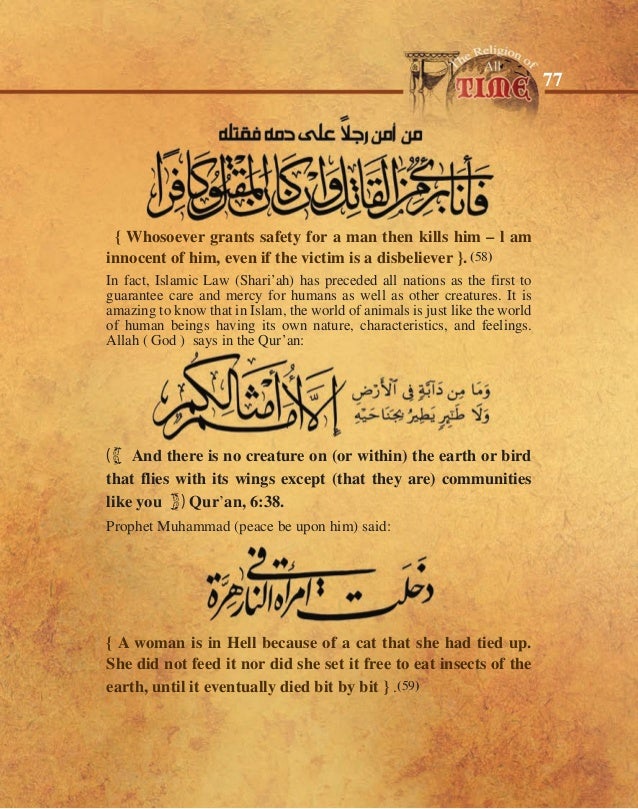 The Religion of
All
TIME
77
من أمن رجلاً على دمه فقتله
فأنا بريء من القاتل وإن كان المقتول كافرا
{ Whosoever grants safety for a man then kills him – l am
innocent of him, even if the victim is a disbeliever }. (58)
In fact, Islamic Law (Shari’ah) has preceded all nations as the first to
guarantee care and mercy for humans as well as other creatures. It is
amazing to know that in Islam, the world of animals is just like the world
of human beings having its own nature, characteristics, and feelings.
Allah ( God ) says in the Qur’an:
وَمَا مِن دَآبَّةٍ فِي ٱلْأَرْضِ
وَلَا طَٰٓئِرٍ يَطِيرُ بِجَنَاحَيْهِ
إِلَّآ أُمَمٌ أَمْثَالُكُم
(﴾ And there is no creature on (or within) the earth or bird
that flies with its wings except (that they are) communities
like you ﴿) Qur’an, 6:38.
Prophet Muhammad (peace be upon him) said:
دَخَلَت امرأة النار في هِرَّة
{ A woman is in Hell because of a cat that she had tied up.
She did not feed it nor did she set it free to eat insects of the
earth, until it eventually died bit by bit } .(59)